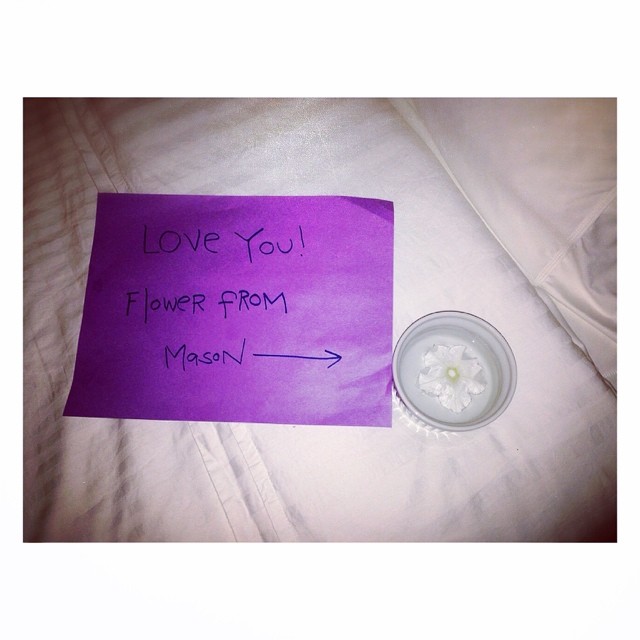 Love You!
Flower from
Mason